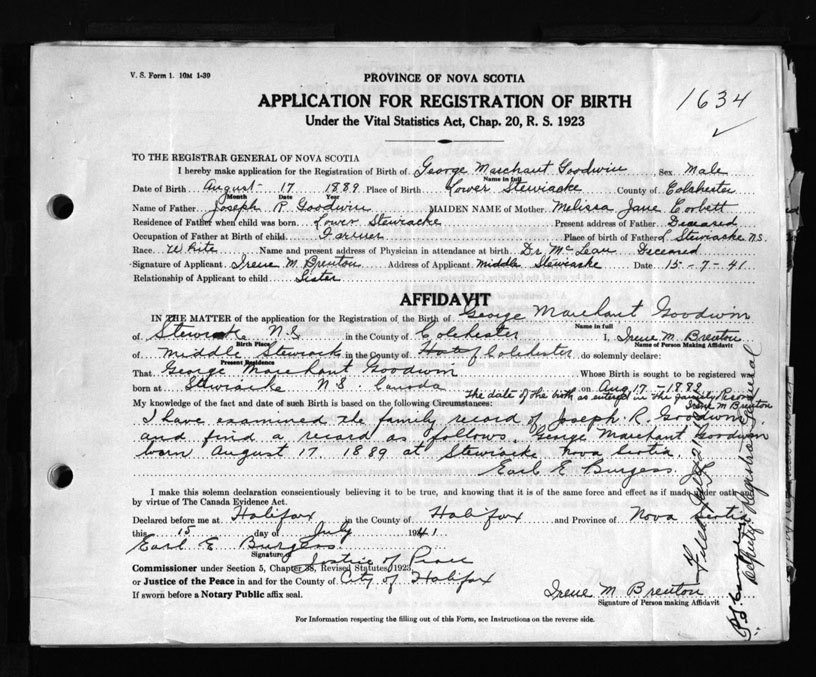 V. S. Form 1. 10M 1-39
PROVINCE OF NOVA SCOTIA
APPLICATION FOR REGISTRATION OF BIRTH
1634
Under the Vital Statistics Act, Chap. 20, R. S. 1923
TO THE REGISTRAR GENERAL OF NOVA SCOTIA
I hereby make application for the Registration of Birth of George Marchant Goodwin Sex Male
Name in full
Date of Birth August 17 1889 Place of Birth Lower Stewiacke County of Colchester
Month Date Year
Name of Father Joseph R Goodwin MAIDEN NAME of Mother Melissa Jane Corbett
Residence of Father when child was born Lower Stewiacke Present address of Father Deceased
Occupation of Father at Birth of child Farmer Place of birth of Father L. Stewiacke N.S.
Race White Name and present address of Physician in attendance at birth Dr McLean Deceased
Signature of Applicant Irene M. Brenton Address of Applicant Middle Stewiacke Date 15-7-41
Relationship of Applicant to child Sister
AFFIDAVIT
IN THE MATTER of the application for the Registration of the Birth of George Marchant Goodwin
Name in full
of Stewiacke N.S in the County of Colchester I, Irene M. Brenton
Birth Place Name of Person Making Affidavit
of Middle Stewiacke in the County of Colchester do solemnly declare:
Present Residence
That George Marchant Goodwin Whose Birth is sought to be registered was
born at Stewiacke N.S. Canada on Aug 17-1882
The date of the birth as entered in the family Record
Irene M Brenton
My knowledge of the fact and date of such Birth is based on the following Circumstances:
I have examined the family record of Joseph. R. Goodwin
and find a record as follows. George Marchant Goodwin
born August 17 1889 at Stewiacke Nova Scotia.
Earl E Burgess. J.P.
I make this solemn declaration conscientiously believing it to be true, and knowing that it is of the same force and effect as if made under oath
by virtue of The Canada Evidence Act.
Declared before me at Halifax in the County of Halifax and Province of Nova Scotia
this 15 day of July 1941
Earl E Burgess
Signature of Justice of Peace
Commissioner under Section 5, Chapter 38, Revised Statutes 1923
or Justice of the Peace in and for the County of City of Halifax
If sworn before a Notary Public affix seal.
Irene M Brenton
Signature of Person making Affidavit
For Information respecting the filling out of this Form, see Instructions on the reverse side.
Deputy Registrar General